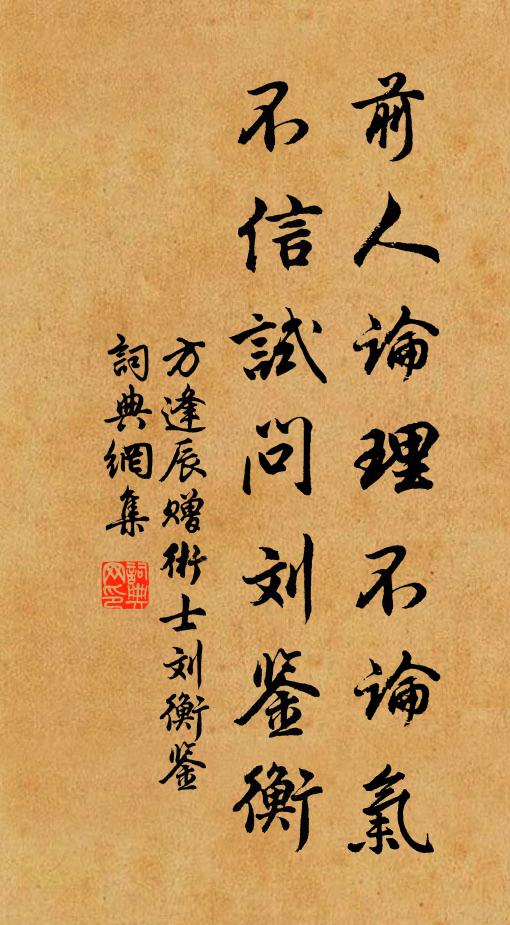 前人論理不論氣
不信試问刘鉴衡
方逢辰赠術士刘衡鉴
詞典網集
詞典网印